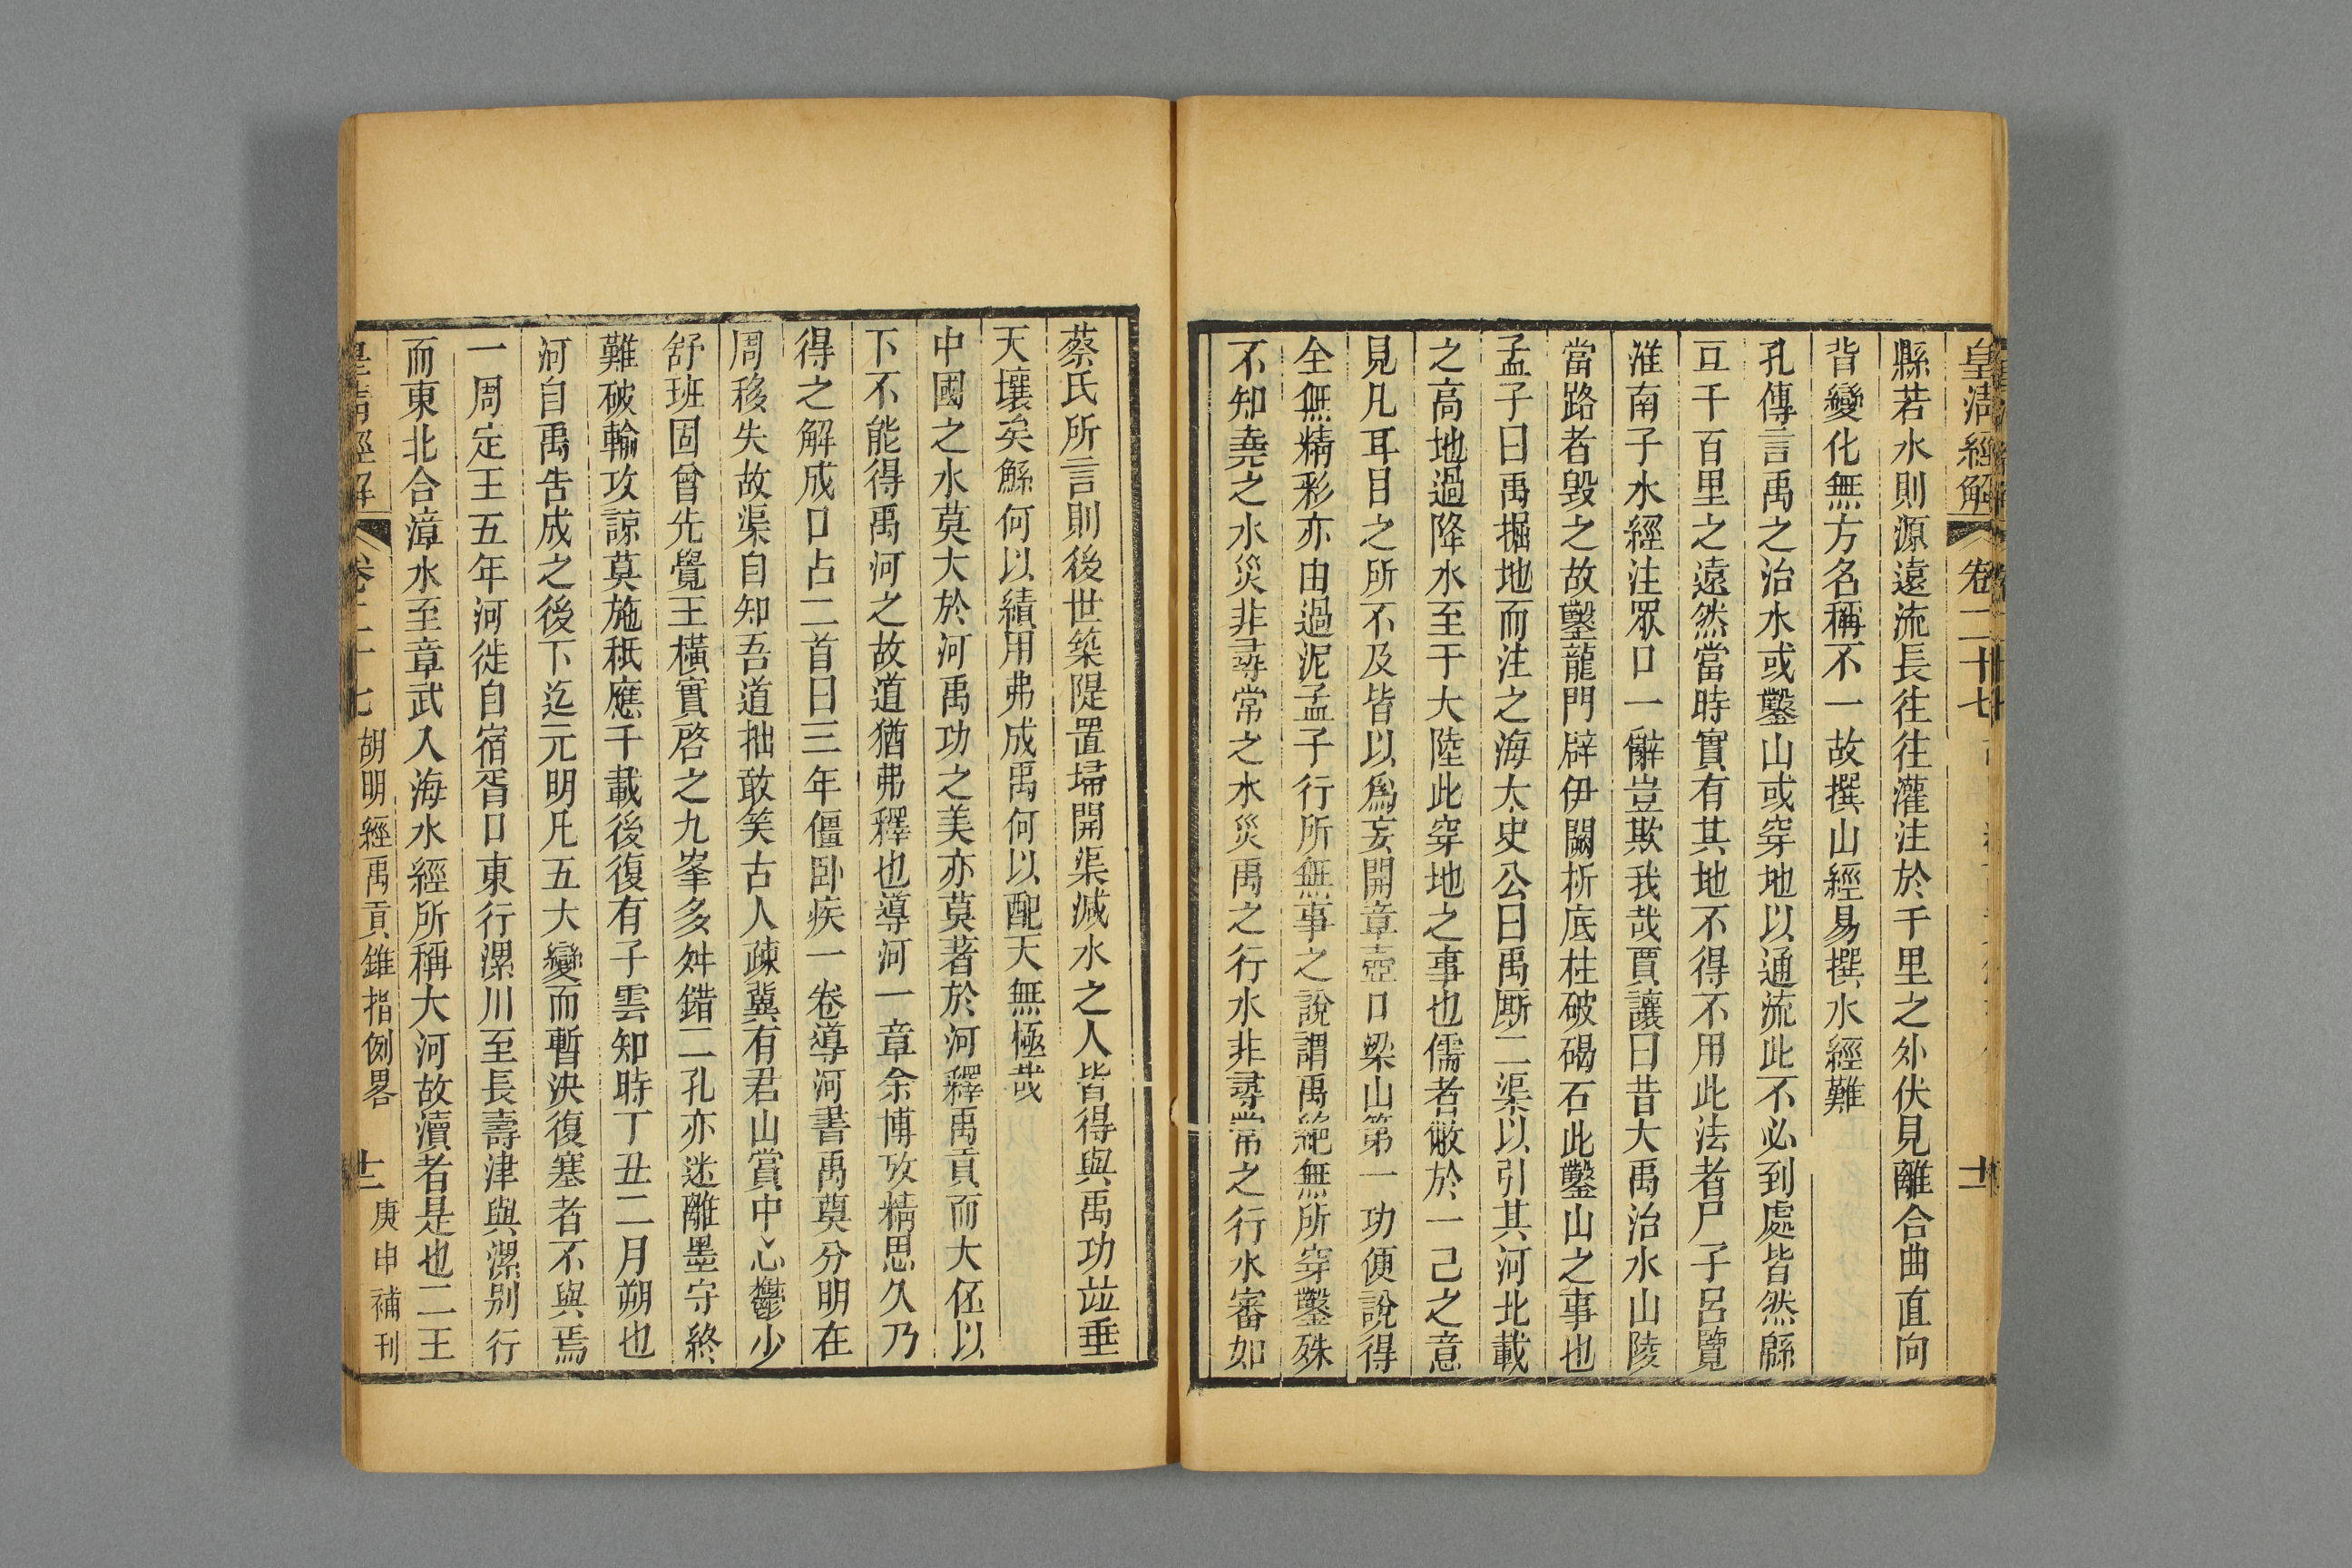 皇清經解 卷二十七 十一
縣若水則源遠流長往往灌注於千里之外伏見離合曲直向
背變化無方名稱不一故撰山經易撰水經難
孔傳言禹之治水或鑿山或穿地以通流此不必到處皆然緜
亙千百里之遠然當時實有其地不得不用此法者尸子呂覽
淮南子水經注眾口一辭豈欺我哉賈讓曰昔大禹治水山陵
當路者毀之故鑿龍門辟伊闕析底柱破碣石此鑿山之事也
孟子曰禹掘地而注之海太史公曰禹厮二渠以引其河北載
之高地過降水至于大陸此穿地之事也儒者敝於一己之意
見凡耳目之所不及皆以為妄開章壺口梁山第一功便說得
全無精彩亦由過泥孟子行所無事之說謂禹絕無所穿鑿殊
不知堯之水災非尋常之水災禹之行水非尋常之行水審如
蔡氏所言則後世築隄置埽開渠減水之人皆得與禹功竝垂
天壤矣鯀何以績用弗成禹何以配天無極哉
中國之水莫大於河禹功之美亦莫著於河釋禹貢而大伾以
下不能得禹河之故道猶弗釋也導河一章余博攷精思久乃
得之解成口占二首曰三年僵臥疾一卷導河書禹奠分明在
周移失故渠自知吾道拙敢笑古人疎冀有君山賞中心鬱少
舒班固曾先覺王橫實啓之九峯多舛錯二孔亦迷離墨守終
難破輸攻諒莫施秖應千載後復有子雲知時丁丑二月朔也
河自禹告成之後下迄元明凡五大變而暫決復塞者不與焉
一周定王五年河徙自宿胥口東行漯川至長壽津與漯別行
而東北合漳水至章武入海水經所稱大河故瀆者是也二王
皇清經解 卷二十七 胡明經禹貢錐指例畧 十二 庚申補刊